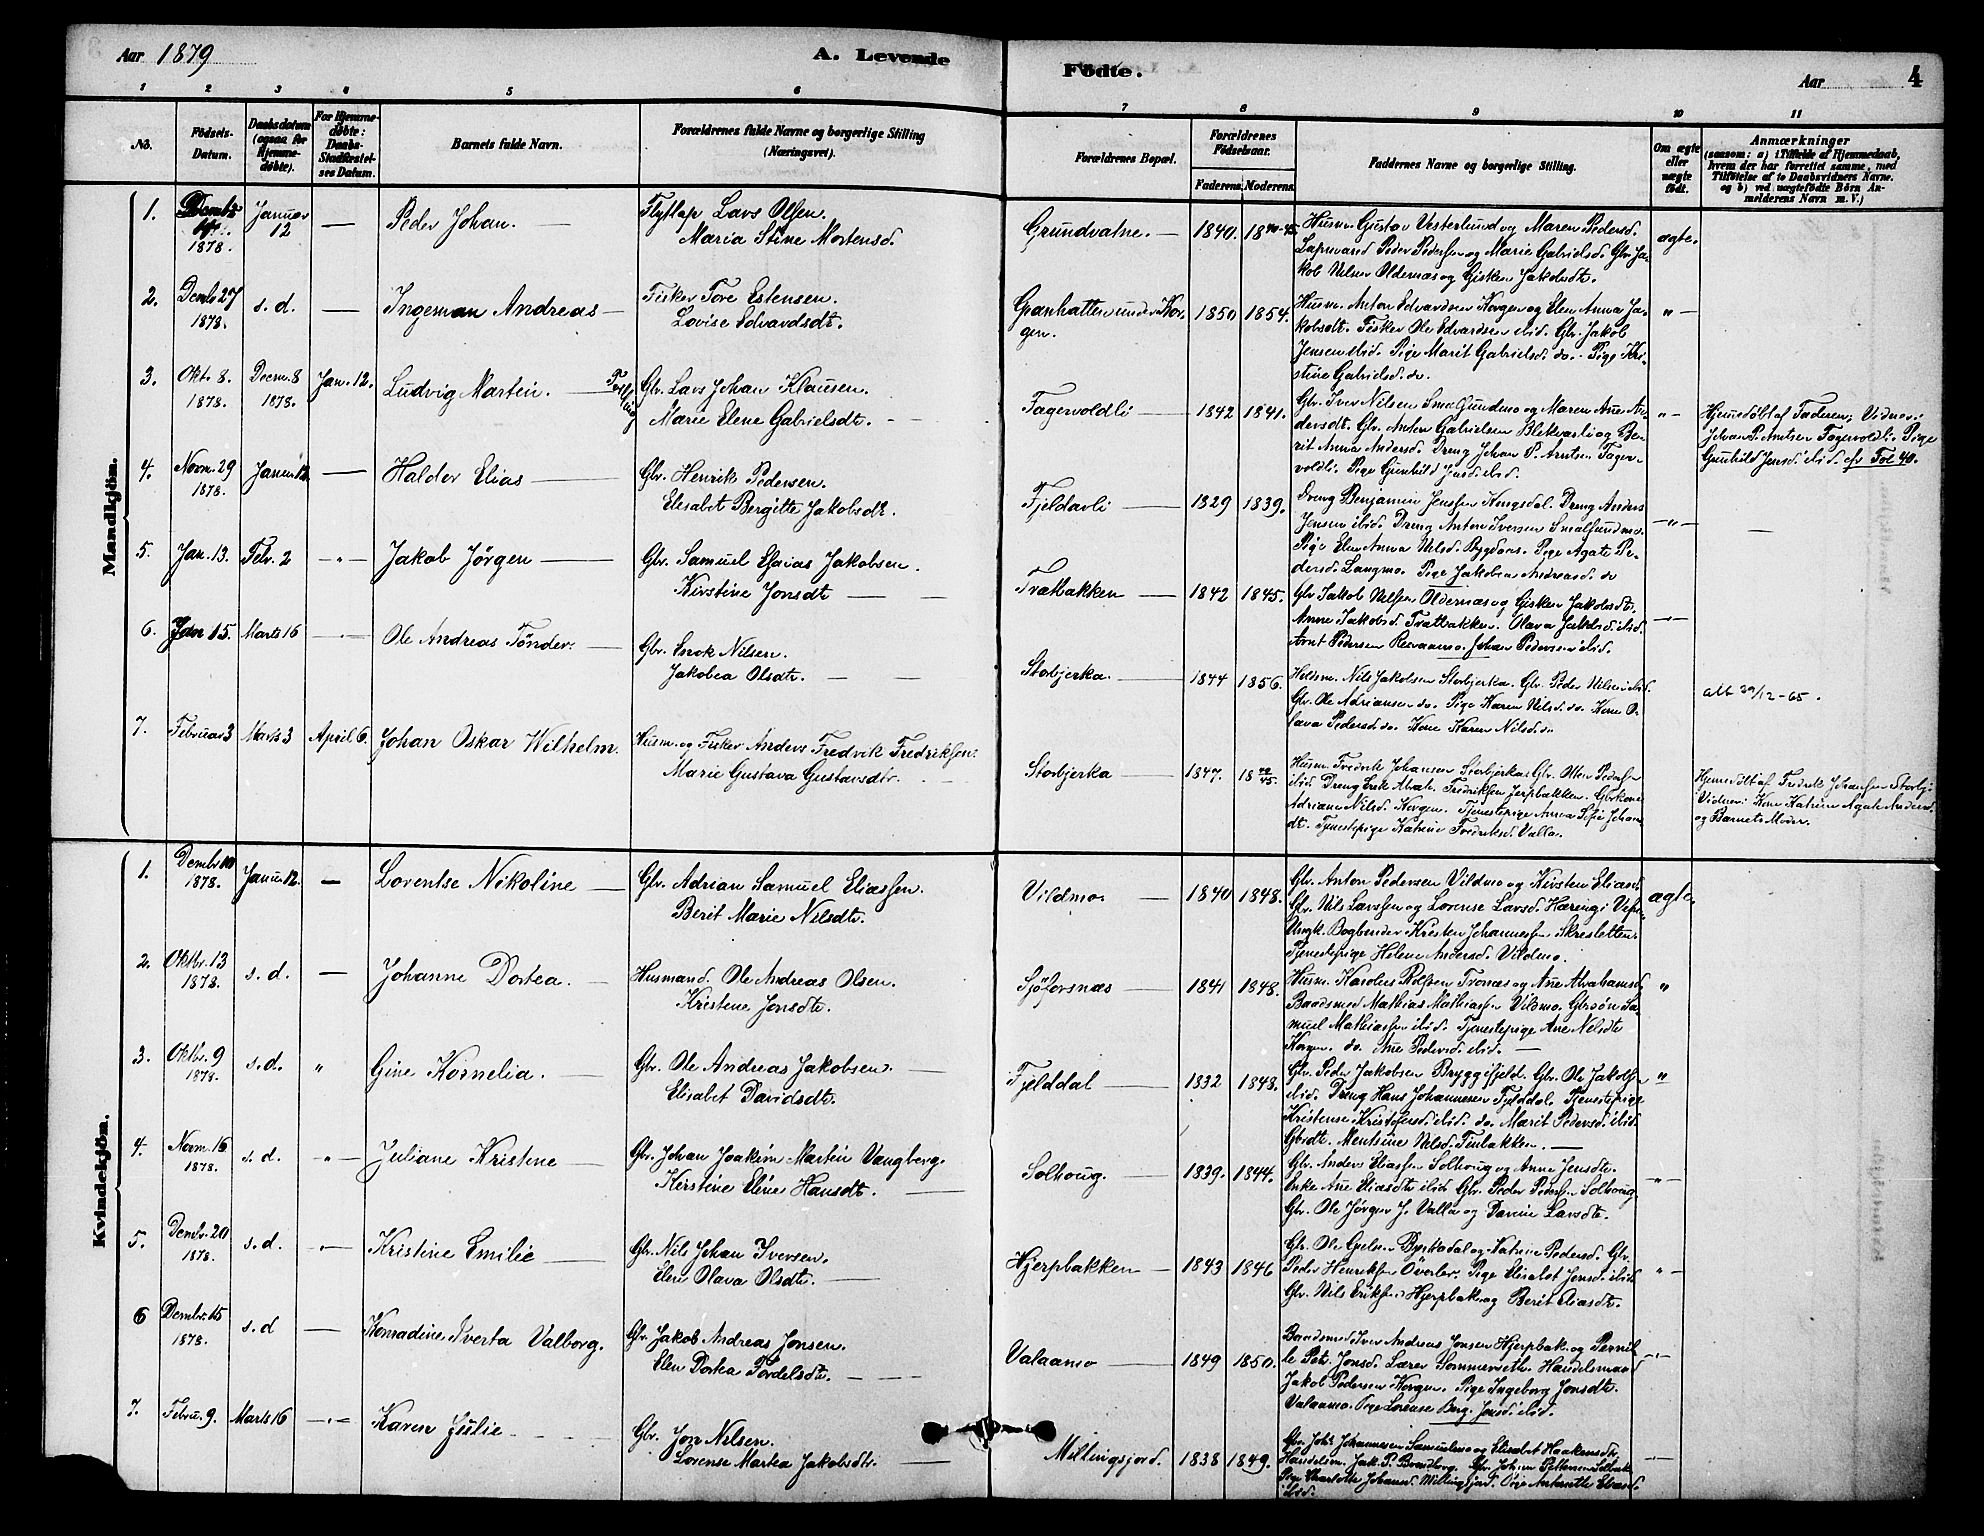 Aar 1879
A. Levende
Fødte.
Aar
4
1 2 3 4 5 6 7 8 9 10 11
No.
Fødsels-Datum.
Daabsdatum (ogsaa for Hjemme-døbte).
For Hjemme-døbte: Daabs-Stadfæstelses Datum.
Barnets fulde Navn.
Forældrenes fulde Navne og borgerlige Stilling (Næringsvei).
Forældrenes Bopæl.
Forældrenes Fødselsaar.
Faderens. Moderens.
Faddernes Navne og borgerlige Stilling.
Om ægte eller uægte født.
Anmærkninger (saasom: a) i Tilfælde af Hjemmedaab, hvem der har forrettet samme, med Tilføielse af to Daabsvidners Navne. og b) ved uægtefødte Børn Anmelderens Navn m. V.)
Mandkjön.
1. 1878. Januar 12 — Peder Johan. — Flytlap Lars Olsen.
Maria Stine Mortensd.
Grundvatne. — 1840.
Husm. Gustav Vesterlund og Maren Pedersd.
Lapmand Peder Pedersen og Marie Gabrielsd. Gbr. Ja-
kob Nilsen Oldernæs og Gisken Jakobsdt.
ægte.
2. Dembr 27 1878. s. d. — Ingeman Andreas — Fisker Tore Estensen.
Lovise Edvardsdt.
Granhatten under Kor-
gen.
1850 1854.
Husm. Anton Edvardsen Korgen og Elen Anna Ja-
kobsdt. Fisker Ole Edvardsen ibid. Gbr. Jakob
Jensen ibid. Pige Marit Gabrielsd. do. Pige Kri-
stine Gabrielsd. do.
" —
3. Okt. 8. 1878. Decm. 8 1878. Jan. 12. Ludvig Martin. — Tvilling Gbr. Lars Johan Klausen.
Marie Elene Gabrielsdt. —
Fagervoldli — 1842 1841.
Gbr. Iver Nilsen Smalsundmo og Maren Ane An-
dersdt. Gbr. Anton Gabrielsen Blekvasli og Be-
rit Anna Andersd. Dreng Johan P. Arntsen Fager-
voldli. Pige Gunhild Jensd. ibid.
" —
Hjemedøbt af Faderen; Vidner:
Johan P. Arntsen Fagervoldli. Pige
Gunhild Jensd. ibid. cfr Fol 40.
4. Novm. 29 1878. Januar 12. — Haldor Elias — Gbr. Henrik Pedersen.
Elisabet Bergitte Jakobsdt.
Fjeldavli — 1829 1839.
Dreng Benjamin Jensen Kongsdal. Dreng Anders
Jensen ibid. Dreng Anton Iversen Smalsundmo.
Pige Elen Anna Nilsd. Bygdaas. Pige Agate Pe-
dersd. Langmo. Pige Jakobea Andreasd. do
— " —
5. Jan. 13. Febr. 2 — " — Jakob Jørgen — Gbr. Samuel Esaias Jakobsen.
Kirstine Jonsdt —
Tvætbakken — 1842 1845.
Gbr. Jakob Nilsen Oldernæs og Gisken Jakobsdt.
Anne Jakobsd. Tvætbakken. Olava Jakobsd. ibid.
Arnt Pedersen Resvanmo. Johan Pedersen ibid.
6. Jan 15. Marts 16 Ole Andreas Tönder. — Gbr. Enok Nilsen.
Jakobea Olsdt. —
Storbjerka. — 1844 1856.
Husm. Nils Jakobsen Storbjerka. Gbr. Peder Nilsen ibid.
Gbr. Ole Adriansen do. Pige Karen Nilsd. do. Kone O-
lava Pedersd. do. Kone Karen Nilsd. do
att 29/12-65.
7. Februar 3 Marts 3 April 6. Johan Oskar Wilhelm. Husm. og Fisker Anders Fredrik Fredriksen.
Marie Gustava Gustavsdtr.
Storbjerka — 1847.
Husm. Fredrik Johansen Storbjerka. Gbr. Otter Pedersen
ibid. Dreng Erik Abrah. Fredriksen Jerpbakken. Gbrkone
Adriane Nilsd. Korgen. Tjenestepige Anna Sofie Johan-
dt. Tjenestepige Katrine Fredriksd. Valla.
Hjemedøbt af Fredrik Johansen Storbj.
Vidner: Kone Katrine Agate Andersd.
og Barnets Moder.
Kvindekjön.
1. Dembr. 10 1878. Januar 12. — Lorentse Nikoline — Gbr. Adrian Samuel Eliassen.
Berit Marie Nilsdt.
Vildmo. — 1840 1848.
Gbr. Anton Pedersen Vildmo og Kirsten Eliasd.
Gbr. Nils Larssen og Lorense Larsd. Hæring i Vefs.
Ungk. Bogbinder Kristen Johannessen Skresletten.
Tjenestepige Helene Andersd. Vildmo.
ægte.
2. Oktbr. 13 1878. s. d. — Johanne Dortea. — Husmand. Ole Andreas Olsen.
Kristene Jonsdt.
Sjøforsnæs — 1841 1848.
Husm. Karolius Rolfsen Trones og Ane Abrahamsd.
Baadsmed Mathias Mathiasen Vildmo. Gbrsøn Sa-
muel Mathiasen ibid. Tjenestepige Ane Nilsdt
Korgen. do. Ane Pedersd. ibid. —
"
3. Oktbr. 9 1878. s. d. " Gine Kornelia. — Gbr. Ole Andreas Jakobsen. —
Elisabet Davidsdt.
Fjelddal — 1832 1848.
Gbr. Peder Jakobsen Bryggfjeld. Gbr. Ole Jakobsen
ibid. Dreng Hans Johannesen Fjelddal. Tjenestepige
Kristense Kristofersd. ibid. do. Marit Pedersd. ibid.
Gbrdt. Mentsine Nilsd. Finbakken. —
"
4. Novm. 16 1878. s. d. " — Juliane Kristine — Gbr. Johan Joakim Martin Vangberg.
Kirstine Eline Hansdt. —
Solhoug. — 1839. 1844.
Gbr. Anders Eliassen Solhoug og Anne Jensdt.
Enke Ane Eliasdt ibid. Gbr. Peder Pedersen Solhoug.
Gbr. Ole Jørgen J. Valla og Davine Larsdt.
— " —
5. Dembr. 20 1878. s. d. — " — Kristine Emilie — Gbr. Nils Johan Iversen.
Elen Olava Olsdt. —
Hjerpbakken — 1843 1846
Gbr. Ole Byrkadal og Katrine Pedersd. Gbr.
Peder Henriksen Överlev. Pige Elisabet Jonsd. ibid.
Gbr. Nils Eriksen Hjerpbak og Berit Eliasdt.
" —
6 Dembr. 15 1878. s. d — Konradine Iverta Valborg. Gbr. Jakob Andreas Jonsen.
Elen Dortea Tordelsdt. —
Valaamo — 1849 1850.
Baadsmed Iver Andreas Jonsen Hjerpbak. og Pernil-
le Petr. Jonsd. Lærer Sommerseth. Handelsmand
Jakob Pedersen Korgen. Pige Ingeborg Jonsdt.
Valaamo. Pige Lorense Berg. Jonsd. ibid.
— " —
7. Febru. 9. Marts 16 — " — Karen Julie. Gbr. Jon Nilsen.
Lorense Martea Jakobsdt. —
Millingsjord. 1838 1849.
Gbr. Johs Johannesen Samuelmo og Elisabet Haakensdt.
Handelsm. Jak. P. Gbr. Johan Pettersen Solbak
Pige Charlotte Johansd. Millingsjord. Pige Antonette Eliasd.
ibid.